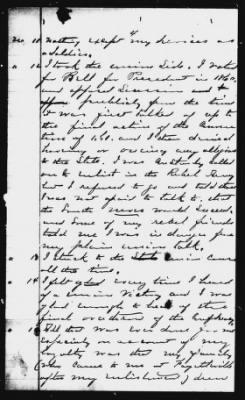 no. 11 nothing except my services as
a soldier.
12 I took the union side. I voted
for Bell for President in 1860,
and opposed Secession and
publicly from the time
it was first talked of up to
the final action of the
of 1861. and I then denied
having or owing any allegiance
to the State. I was
out to enlist in the Rebel Army
but I refused to go and told them
I was not afraid to talk to, that
the South never would succeed,
and some of my rebel friends
told me I was in danger for
my plain union talk.
13 I stuck to the union cause
all the time.
14 I felt glad every time I heard
of a union victory and I was
glad enough to hear of the
final overthrow of the
15 All that was ever done for me
especially on account of my
loyalty was that my family
came to me at Fayetteville
after my enlistment, drew